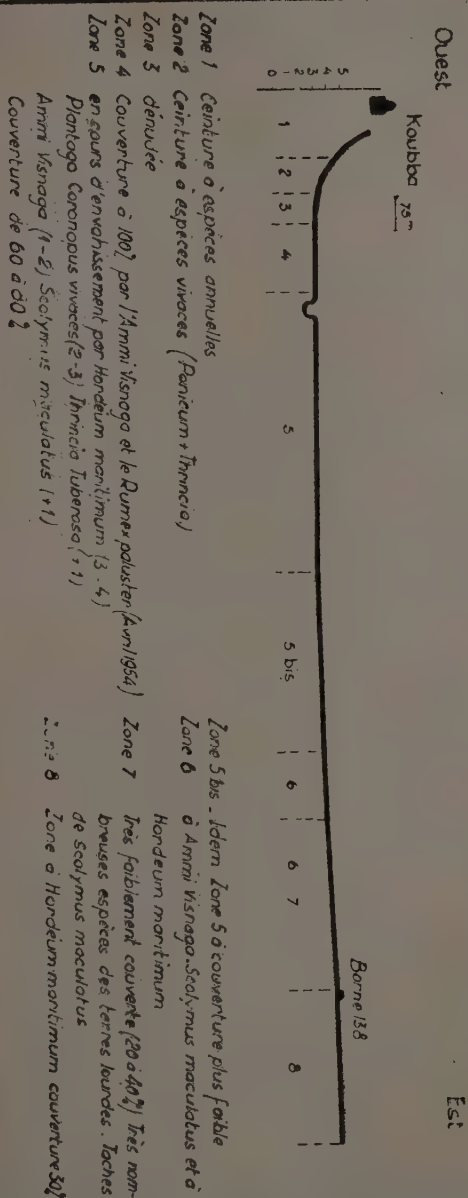 Ouest
Est
Koubba
75m
Borne 138
5
4
3
2
1
0
1
2
3
4
5
5 bis
6
6 7
8
Zone 1 Ceinture à espèces annuelles
Zone 2 Ceinture à espèces vivaces (Panicum + Thrincia)
Zone 3 dénudée
Zone 4 Couverture à 100% par l'Ammi Visnaga et le Rumex paluster (Avril 1954)
Zone 5 en cours d'envahissement par Hordeum maritimum (3-4)
Plantago Coronopus vivaces (2-3) Thrincia Tuberosa (+1)
Ammi Visnaga (1-2) Scolymus maculatus (+1)
Couverture de 60 à 80%
Zone 5 bis - Idem Zone 5 à couverture plus faible
Zone 6 à Ammi Visnaga. Scolymus maculatus et à
Hordeum maritimum
Zone 7 Très faiblement couverte (20 à 40%) Très nom-
breuses espèces des terres lourdes. Taches
de Scolymus maculatus
Zone 8 Zone à Hordeum maritimum couverture 30%